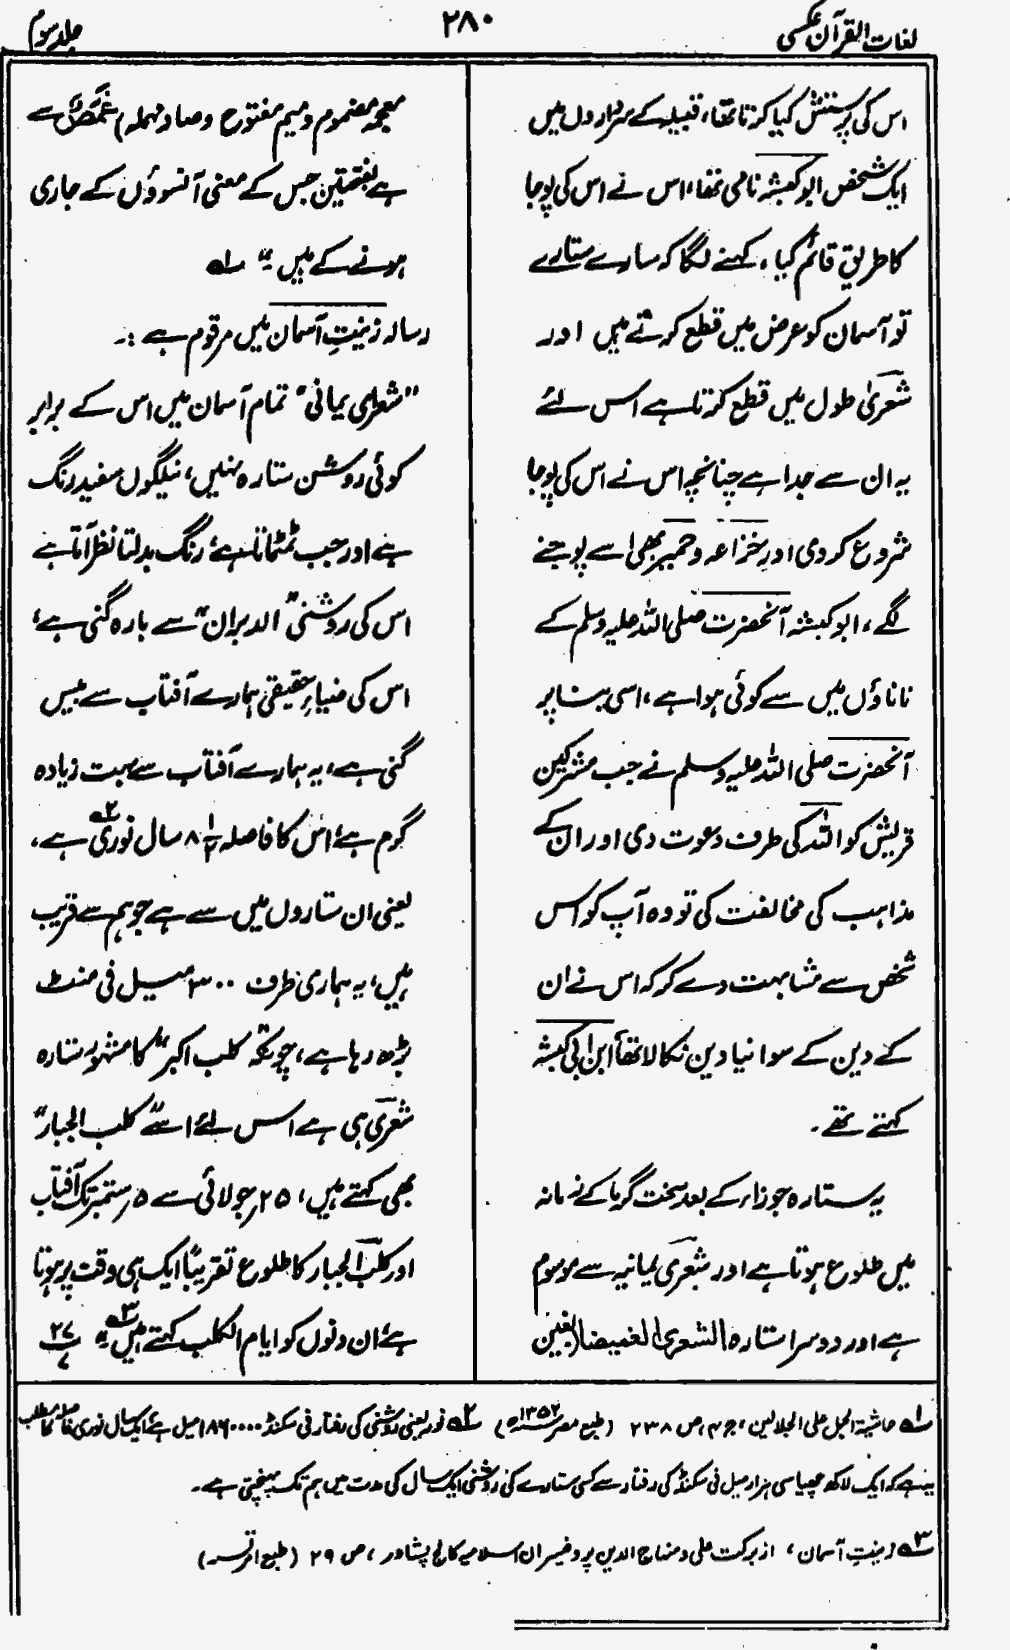 لغات القرآن عکسی
۲۸۰
جلد سوم
اس کی پرستش کیا کرتا تھا، قبیلہ کے سرداروں میں
ایک شخص ابو کبشہ نامی تھا، اس نے اس کی پوجا
کا طریق قائم کیا، کہنے لگا کہ سارے ستارے
تو آسمان کو عرض میں قطع کرتے ہیں اور
شعریٰ طول میں قطع کرتا ہے اس لئے
یہ ان سے جدا ہے چنانچہ اس نے اس کی پوجا
شروع کر دی اور خزاعہ و حمیر بھی اسے پوجنے
لگے، ابو کبشہ آنحضرت صلی اللہ علیہ وسلم کے
ناناؤں میں سے کوئی ہوا ہے، اسی بنا پر
آنحضرت صلی اللہ علیہ وسلم نے جب مشرکین
قریش کو اللہ کی طرف دعوت دی اور ان کے
مذاہب کی مخالفت کی تو وہ آپ کو اس
شخص سے مشابہت دے کر کہ اس نے ان
کے دین کے سوا نیا دین نکالا تھا ابن ابی کبشہ
کہتے تھے۔
یہ ستارہ جوزاء کے بعد سخت گرما کے زمانہ
میں طلوع ہوتا ہے اور شعری یمانیہ سے موسوم
ہے اور دوسرا ستارہ الشعری الغمیصا (بغین
معجمہ مضموم و میم مفتوح و صاد مہملہ) غمص سے
ہے بفتحتین جس کے معنی آنسوؤں کے جاری
ہونے کے ہیں" ۱ے
رسالہ زینتِ آسمان میں مرقوم ہے :۔
"شعرای یمانی" تمام آسمان میں اس کے برابر
کوئی روشن ستارہ نہیں، نیلگوں سفید رنگ
ہے اور جب ٹمٹماتا ہے رنگ بدلتا نظر آتا ہے
اس کی روشنی "الدبران" سے بارہ گنی ہے،
اس کی ضیاءِ حقیقی ہمارے آفتاب سے بیس
گنی ہے، یہ ہمارے آفتاب سے بہت زیادہ
گرم ہے اس کا فاصلہ ۸ ۱/۲ سال نوری ۲ے ہے،
یعنی ان ستاروں میں سے ہے جو ہم سے قریب
ہیں، یہ ہماری طرف ۳۰۰ میل فی منٹ
بڑھ رہا ہے، چونکہ "کلب اکبر" کا مشہور ستارہ
شعری ہی ہے اس لئے اسے "کلب الجبار"
بھی کہتے ہیں، ۲۵ جولائی سے ۵ ستمبر تک آفتاب
اور کلب الجبار کا طلوع تقریباً ایک ہی وقت پر ہوتا
ہے ان دنوں کو ایام الکلب کہتے ہیں" ۳ے پ ۲۷ ۷
۱ے حاشیۃ الجمل علی الجلالین، ج ۴، ص ۲۳۸ (طبع مصر ۱۳۵۲ھ) ۲ے نور یعنی روشنی کی رفتار فی سکنڈ ۱۸۶۰۰۰ میل ہے ایک سال نوری فاصلہ کا مطلب
یہ ہے کہ ایک لاکھ چھیاسی ہزار میل فی سکنڈ کی رفتار سے کسی ستارے کی روشنی ایک سال کی مدت میں ہم تک پہنچتی ہے۔
۳ے زینتِ آسمان، از برکت علی و منہاج الدین پروفیسران اسلامیہ کالج پشاور، ص ۲۹ (طبع امرتسر)